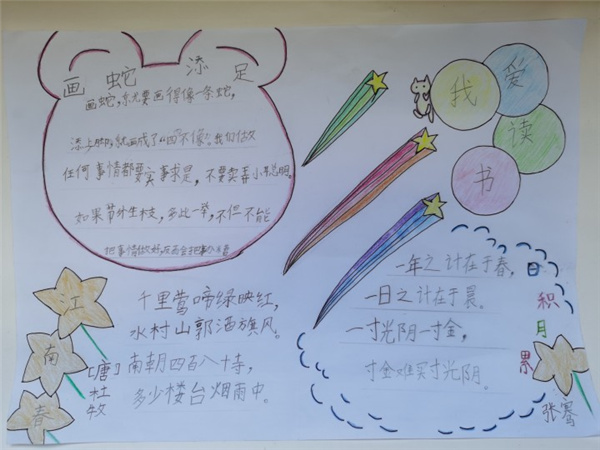 画蛇添足
画蛇,就要画得像一条蛇,
添上脚,就画成了“四不像”。我们做
任何事情都要实事求是,不要卖弄小聪明。
如果节外生枝,多此一举,不但不能
把事情做好,反而会把事
我爱读书
一年之计在于春,
一日之计在于晨。
一寸光阴一寸金,
寸金难买寸光阴。
日积月累
江南春
[唐]杜牧
千里莺啼绿映红,
水村山郭酒旗风。
南朝四百八十寺,
多少楼台烟雨中。
张骞